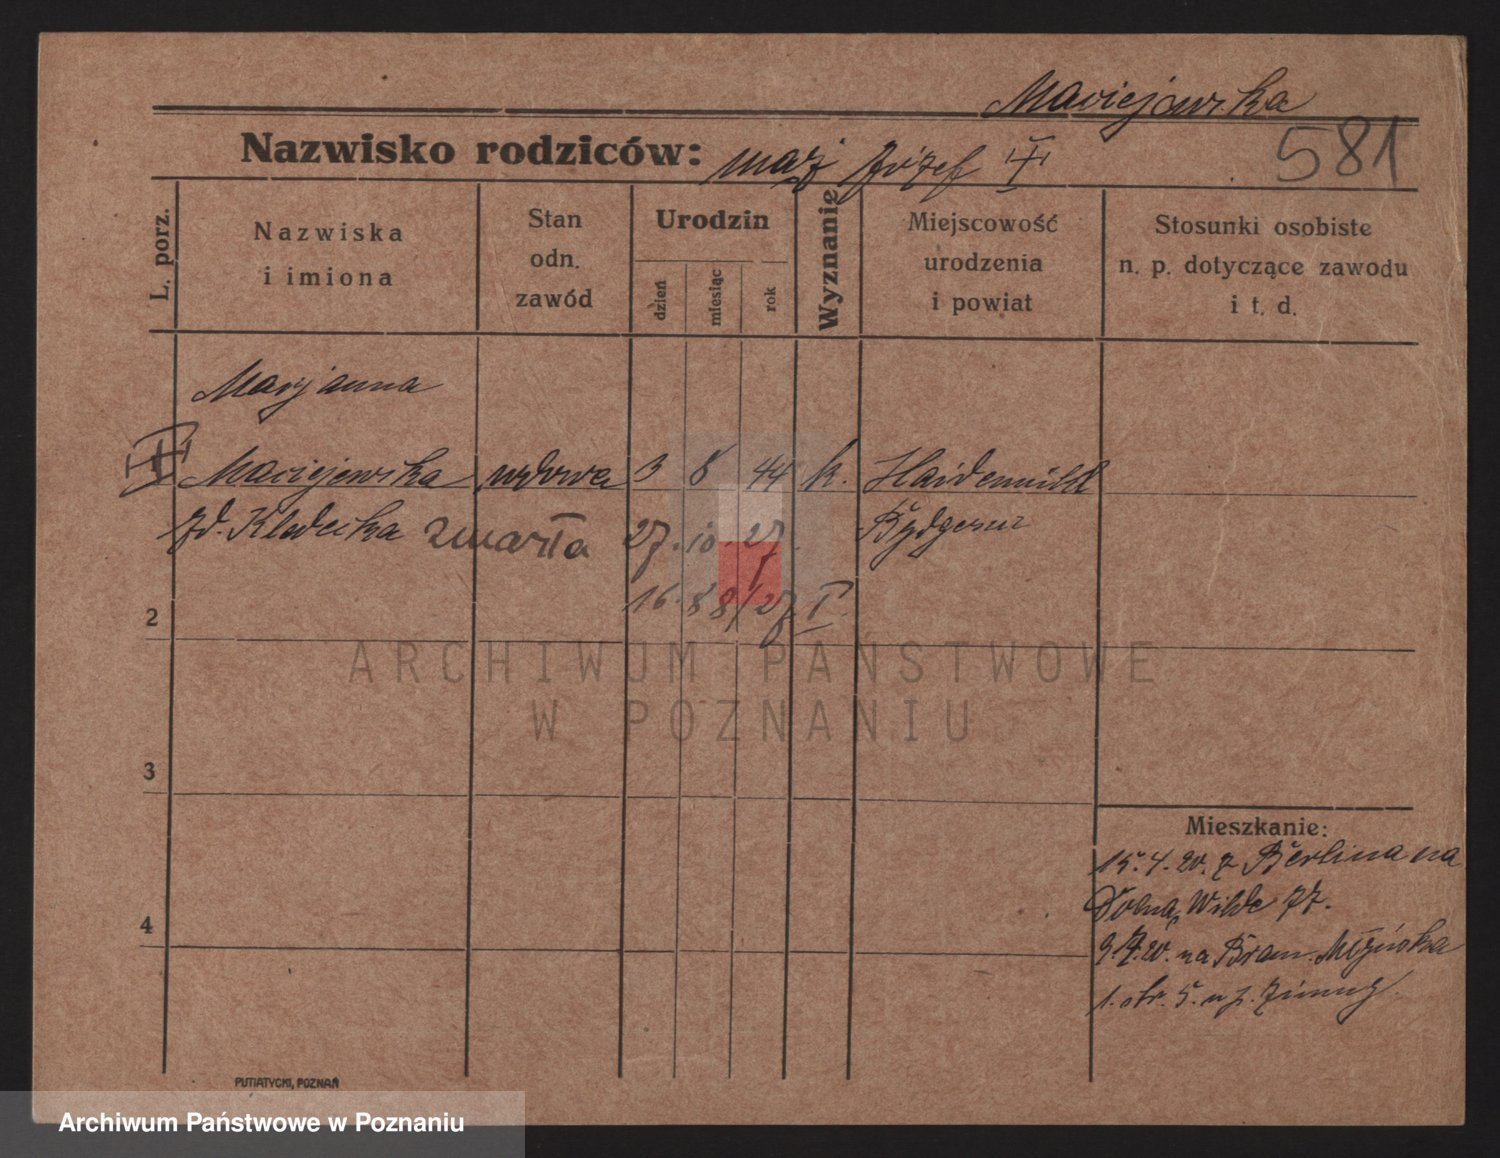 Maciejewska
581
Nazwisko rodziców: mąż Józef
L. porz.
Nazwiska
i imiona
Stan
odn.
zawód
Urodzin
dzień
miesiąc
rok
Wyznanie
Miejscowość
urodzenia
i powiat
Stosunki osobiste
n. p. dotyczące zawodu
i t. d.
Marjanna
Maciejewska wdowa 3 8 44 k.
zmarła 27. 10. 27.
16. 88/27 I
2
ARCHIWUM PAŃSTWOWE
W POZNANIU
3
Mieszkanie:
15. 4. 20. z Berlina na
Dolna Wilde 77.
4
9. 7. 20. na
1. str. 5. u
PUTIATYCKI, POZNAŃ
Archiwum Państwowe w Poznaniu